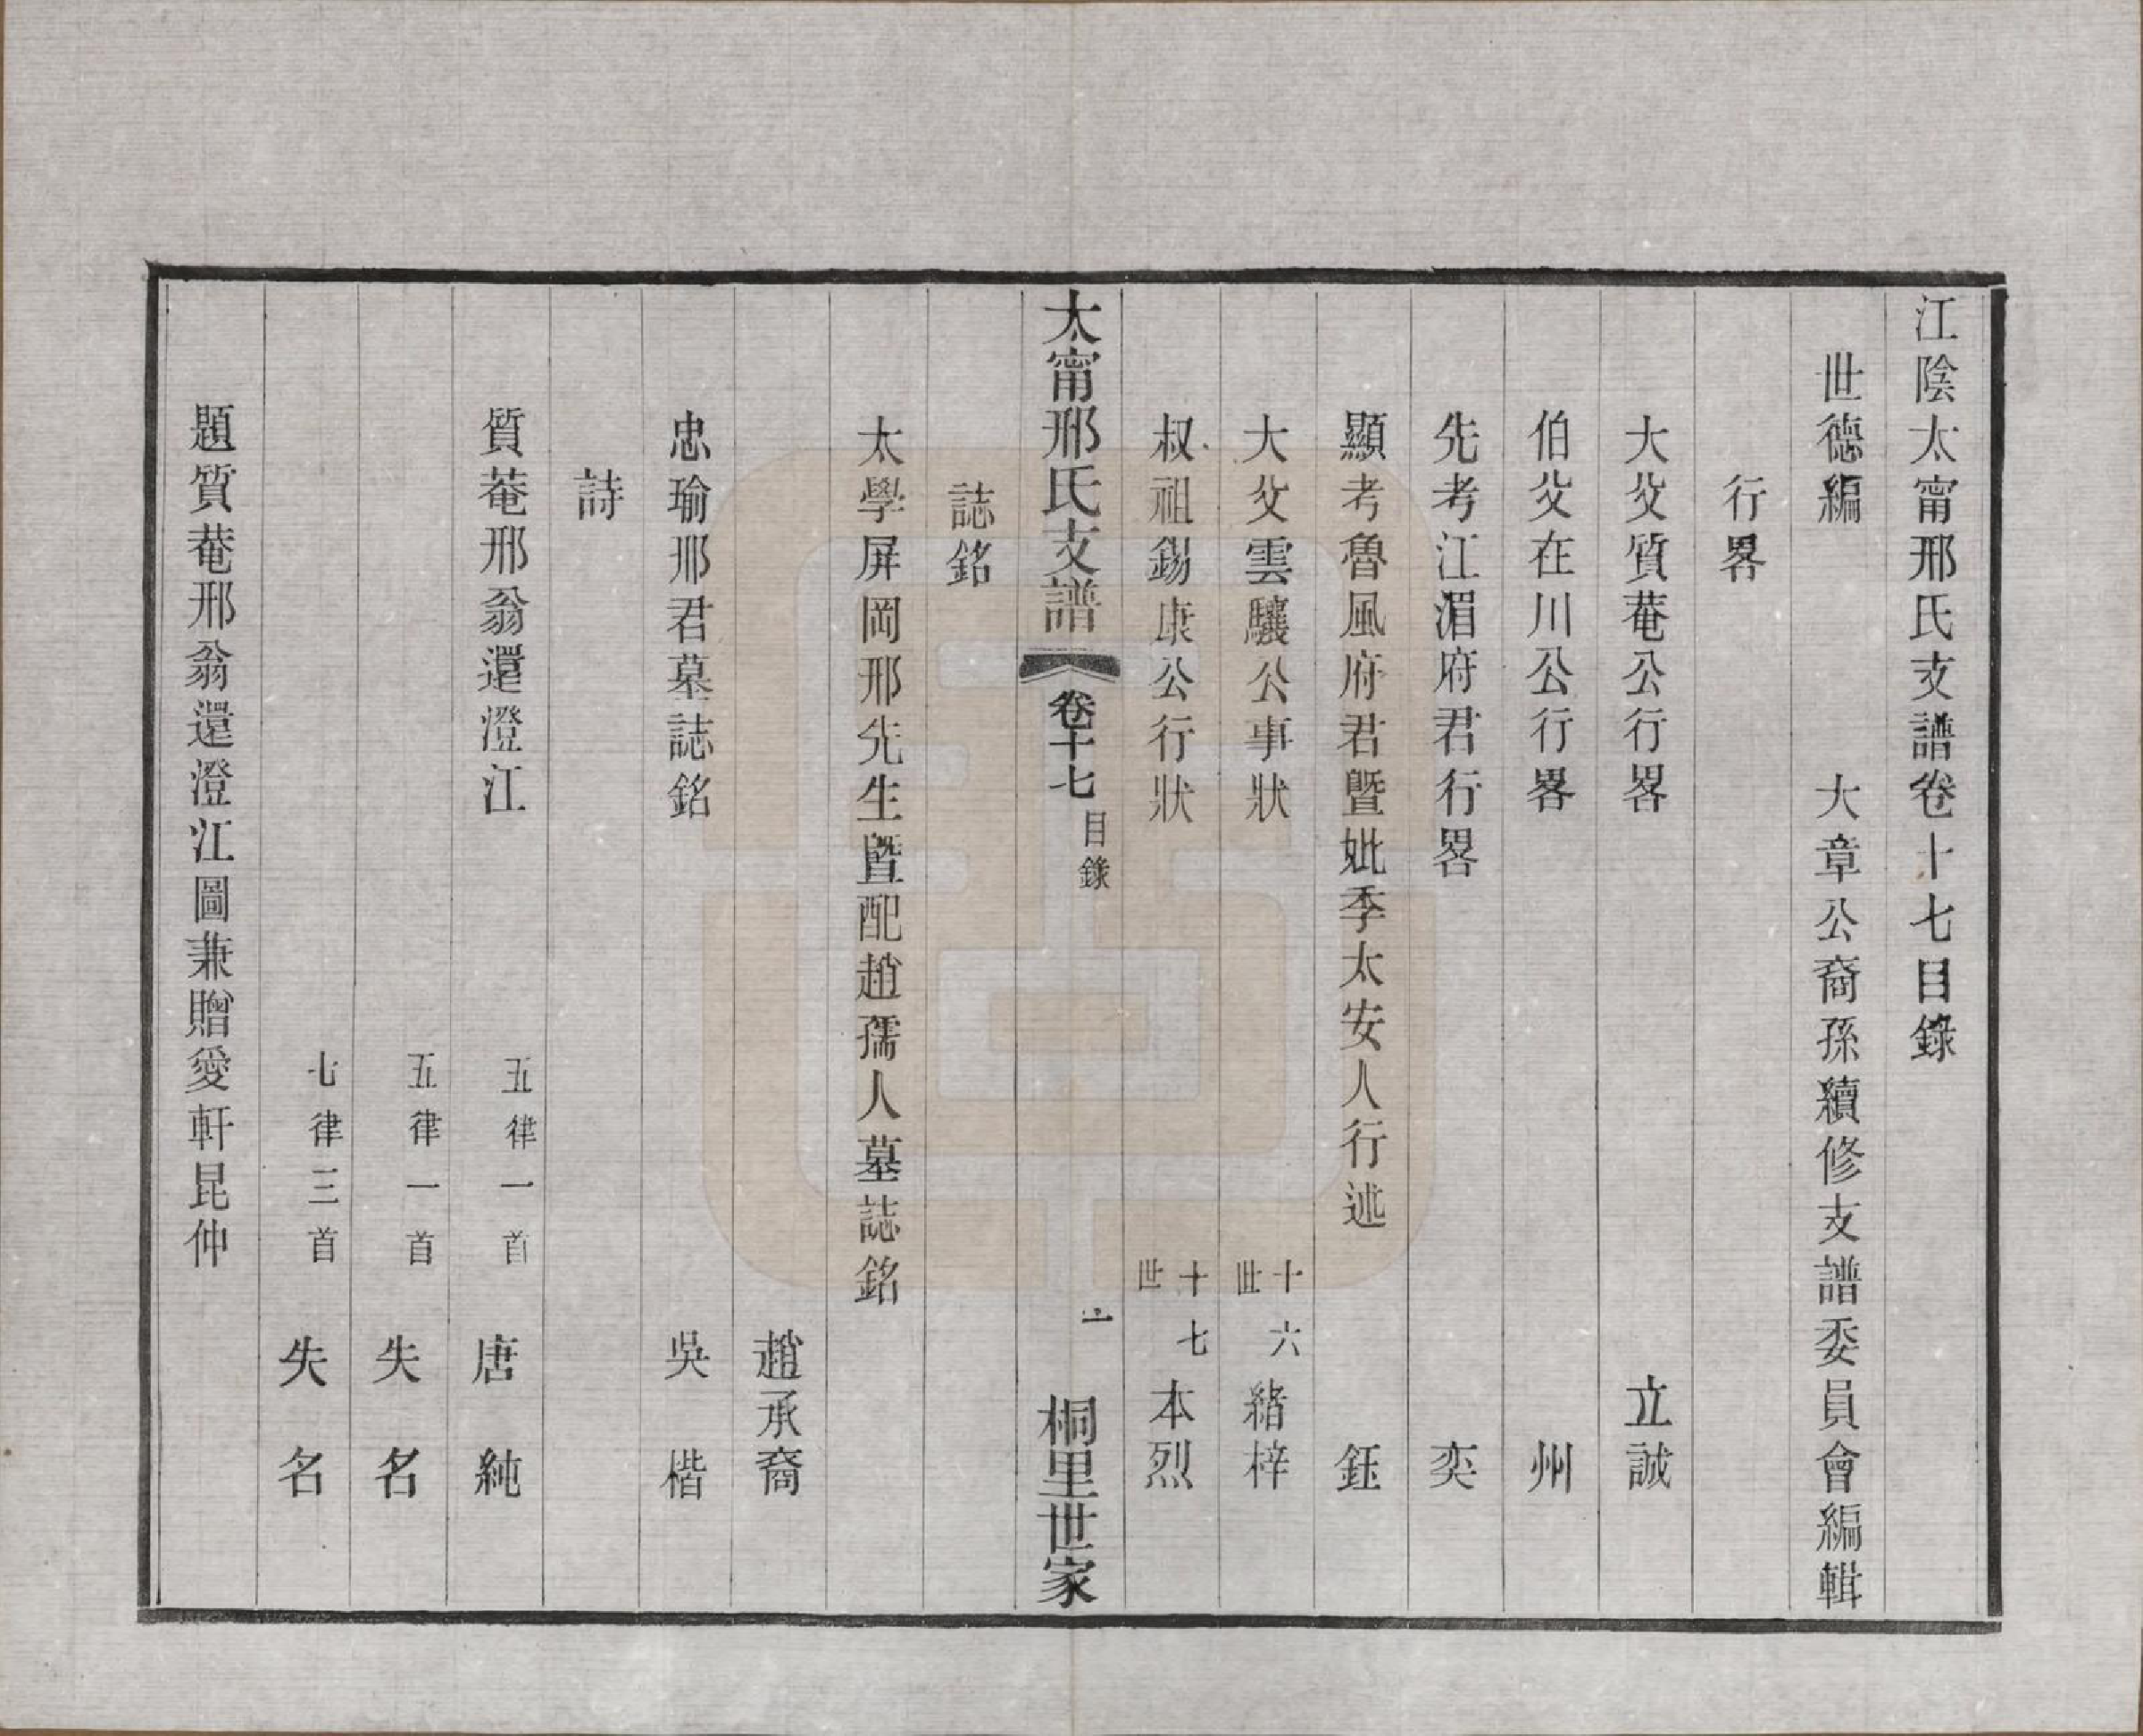 江陰太甯邢氏支譜卷十七目錄
世德編 大章公裔孫續修支譜委員會編輯
行畧
大父質菴公行畧 立誠
伯父在川公行畧 州
先考江湄府君行畧 奕
顯考魯風府君曁妣季太安人行述 鈺
大父雲驤公事狀 十六世 緒梓
叔祖錫康公行狀 十七世 本烈
太甯邢氏支譜 卷十七 目錄 一 桐里世家
誌銘
太學屏岡邢先生曁配趙孺人墓誌銘
趙承裔
忠瑜邢君墓誌銘 吳楷
詩
質菴邢翁還澄江 五律一首 唐純
五律一首 失名
七律三首 失名
題質菴邢翁還澄江圖兼贈愛軒昆仲